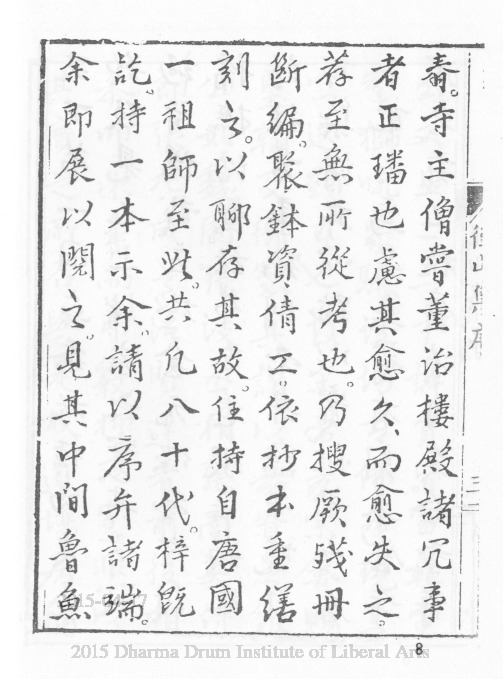 春。寺主僧嘗董治樓殿諸冗事
者正璠也慮其愈久、而愈失之。
荐至無所從考也。乃搜厥殘冊
斷編。聚鉢資倩工。依抄本重繕
刻之。以聊存其故。住持自唐國
一祖師至此。共凡八十代。梓既
訖。持一本示余。請以序弁諸端。
余即展以閱之。見其中間魯魚
山集序
三
8
2015 Dharma Drum Institute of Liberal Arts